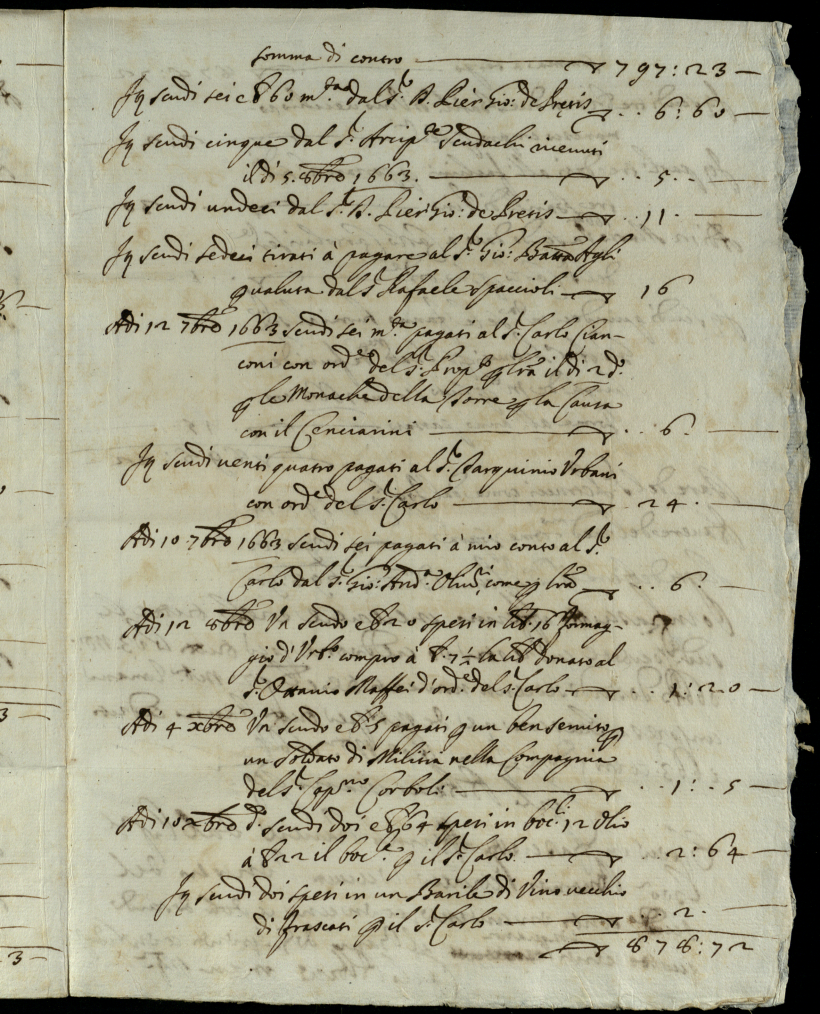 somma di contro — 797:23 —
Jtẽ scudi sei e b 60 m.ta dal s.r D. Pier Gio: de Pretis — .. 6:60 —
Jtẽ scudi cinque dal s.r Arcip.te riceuuti
il di 5. 8bre 1663. — .. 5 .. —
Jtẽ scudi undeci dal s.r D. Pier Gio: de Pretis — .. 11 . —
Jtẽ scudi sedeci tirati à pagare al s.r Gio: Batta Agli
q ualuta dal s.r Rafaele Spaccioli — 16
Adi 12 7bre 1663 scudi sei m.ta pagati al s.r Carlo Cian-
coni con ord.e del s.r il di 2 d.o
q le Monache della Torre q la Causa
con il Cenciarini — .. 6 . —
Jtẽ scudi uenti quatro pagati al s.r Tarquinio Vrbani
con ord.e del s.r Carlo — . 24 . —
Adi 10 7bre 1663 scudi sei pagati à mio conto al s.r
Carlo dal s.r Gio: And.a come q lrã — .. 6 . —
Adi 12 8bre Vn scudo e b 20 spesi in lib. 16 formag-
gio d'Vrb.o compro à b. 7½ la lib. donato al
s.r Ottauio Maffei d'ord.e del s.r Carlo — .. 1:20 —
Adi 4 xbre Vn scudo e b 5 pagati q un ben seruito q
un soldato di Militia nella Compagnia
del s.r Cap.no Corboli — .. 1: . 5 —
Adi 10 xbre d.o scudi doi e b 64 spesi in boc.li 12 Olio
à b 22 il boc.le q il s.r Carlo — . 2:64 —
Jtẽ scudi doi spesi in un Barile di Vino uecchio
di frascati q il s.r Carlo — .. 2 . —
— 878:72
3 —
3 —